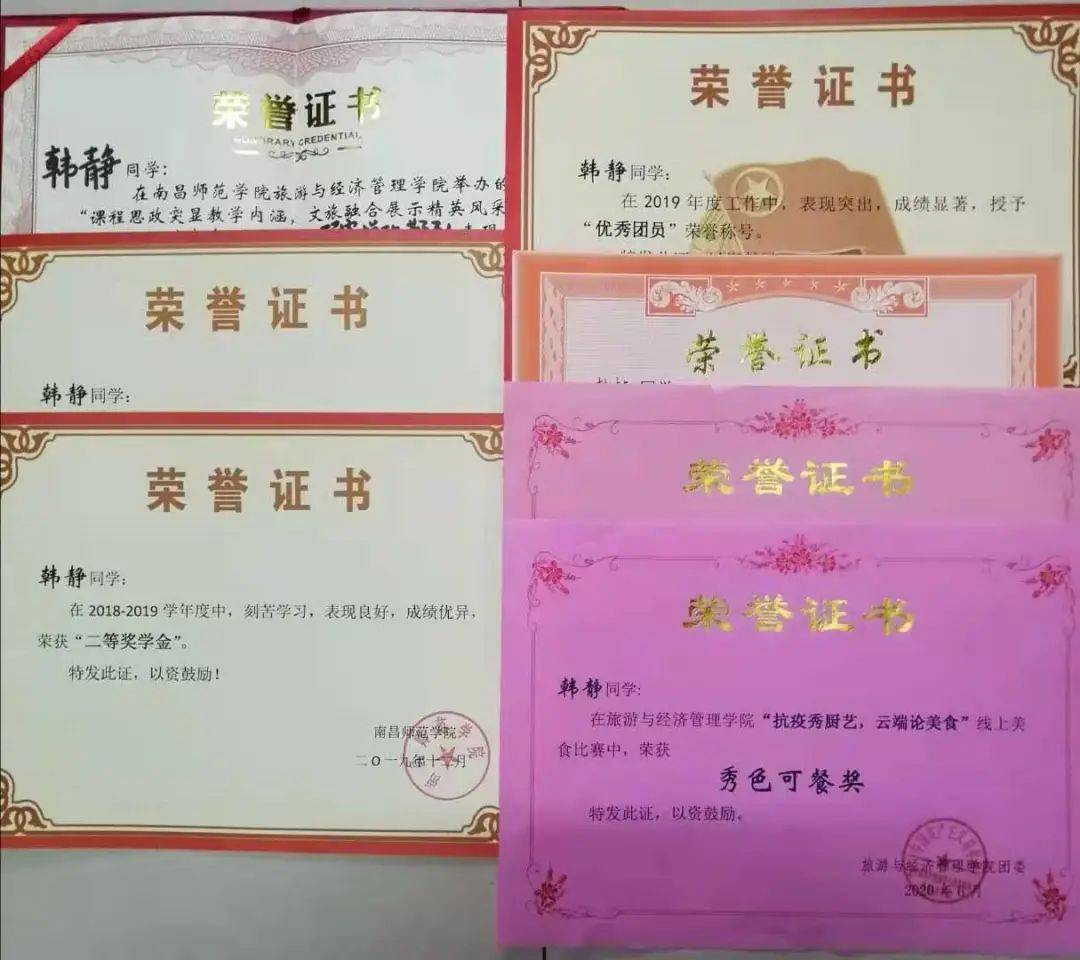 荣誉证书
HONORARY CREDENTIAL
韩静 同学：
在南昌师范学院旅游与经济管理学院举办的
“课程思政突显教学内涵，文旅融合展示精英风采
荣誉证书
韩静同学：
在 2019 年度工作中，表现突出，成绩显著，授予
“优秀团员”荣誉称号。
荣誉证书
韩静同学：
荣誉证书
荣誉证书
韩静同学：
在 2018-2019 学年度中，刻苦学习，表现良好，成绩优异，
荣获“二等奖学金”。
特发此证，以资鼓励！
南昌师范学院
二〇一九年十二月
荣誉证书
荣誉证书
韩静同学：
在旅游与经济管理学院“抗疫秀厨艺，云端论美食”线上美
食比赛中，荣获
秀色可餐奖
特发此证，以资鼓励。
旅游与经济管理学院团委
2020 年 6 月